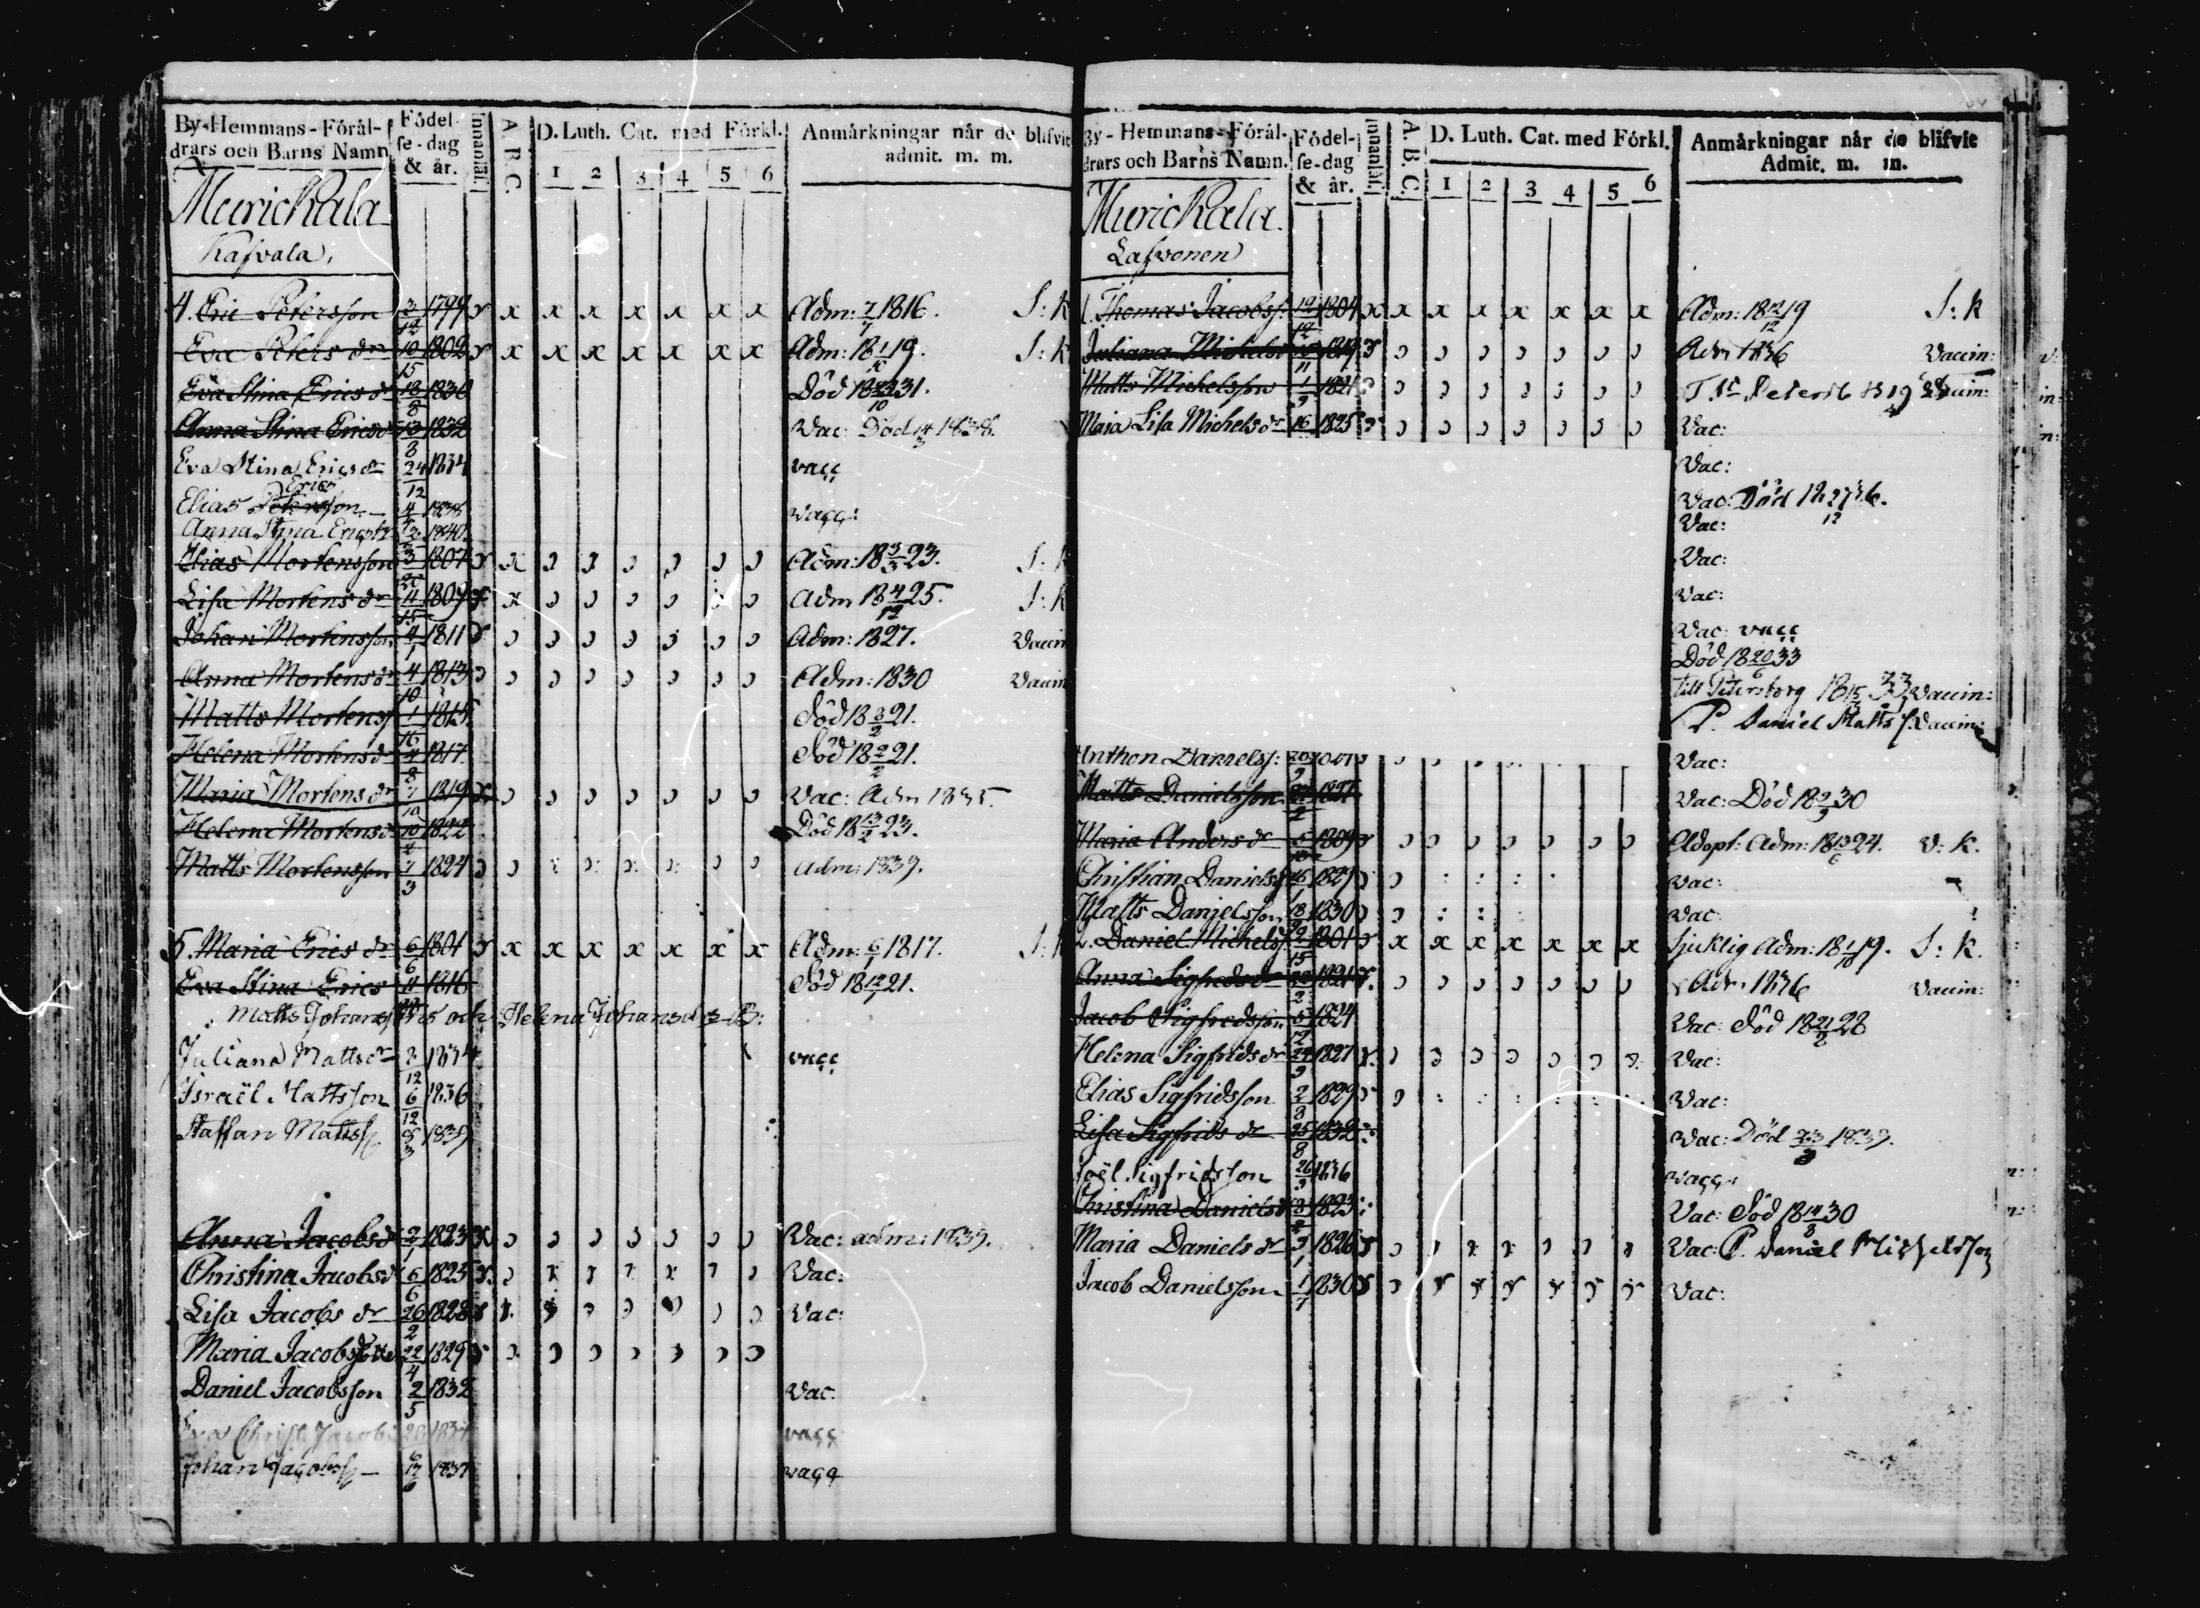 By-Hemmans-Förål-drars och Barns Namn Födel-se-dag & år. Innanläs: A.B.C. D. Luth. Cat. med Förkl. 1 2 3 4 5 6 Anmärkningar når de blifvit admit. m. m.
Murickala
Kasvala,
4. Eric Petersson 3/12 1799 x x x x x x x x Adm: 7/7 1816. S: k
Eva Peters dr 10/15 1802 x x x x x x x x Adm: 18 1/10 19. S: k
Eva Stina Erics dr 18/8 1830 Död 18 /10 31.
Anna Stina Erics dr 13/8 1832 Vac: Död 1838.
Eva Stina Erics dr 24/12 1834 vacc
Elias Petersson Erics 4 1838 vacc:
Anna Stina Ericsdr 1840.
Elias Mortensson 3 1807 Adm: 18 3/3 23. S: k
Lisa Mortens dr 11/15 1809 Adm 18 4/12 25. S: k
Johan Mortensson 4/1 1811 Adm: 1827. Vaccin
Anna Mortens dr 4/10 1813 Adm: 1830 Vaccin
Matts Mortenss 1/16 1815 Död 18 3/2 21.
Helena Mortens dr 4/8 1817. Död 18 2/2 21.
Maria Mortens dr 7/10 1819 Vac: Adm 1835.
Helena Mortens dr 10 1822 Död 18 13/2 23.
Matts Mortensson 7/3 1824 Adm: 1839.
5. Maria Erics dr 6/6 1801 x x x x x x x Adm: 6/7 1817. S: k
Eva Stina Erics 11 1816 Död 18 12/7 21.
Matts Johanss och Helena Johansdr B:
Juliana Matts dr 2/12 1834 vacc
Israël Mattsson 6/12 1836
Staffan Mattss 1839
Anna Jacobs dr 2/1 1823 Vac: adm: 1839.
Christina Jacobsdr 6/6 1825 Vac:
Lisa Jacobs dr 26/2 1828 Vac:
Maria Jacobs 22/4 1829
Daniel Jacobsson 2/5 1832 Vac:
Eva Christ. Jacobs 20 1834 vacc
Johan Jacobss 17/6 1837 vacc
By-Hemmans-Förål-drars och Barns Namn. Födel-se-dag & år. Innanläs: A.B.C. D. Luth. Cat. med Förkl. 1 2 3 4 5 6 Anmärkningar når de blifvit Admit. m. m.
Murickala.
Lasvonen
1. Thomas Jacobss: 19/12 1801 x x x x x x x x Adm: 18 12/12 19 S: k
Juliana Michels 1819 Adm 1836 Vaccin:
Matts Michelsson 1/9 1821 T. St Petersb 18 Vaccin:
Maia Lisa Michels dr 16 1825 Vac:
Vac:
Vac: Död 18 27/12 36.
Vac:
Vac:
Vac:
Vac: vacc
Död 18 20/6 33
Till Petersborg 18 15 33 Vaccin:
P. Daniel Matts s. Vaccin:
Anthon Danielss: 20/9 Vac:
Matts Danielsson 1827 Vac: Död 18 2/3 30
Maria Anders dr 5 1809 Adopt: Adm: 18 13/6 24. V: k.
Christian Danielss 16/1 1829 Vac:
Matts Danielsson 18/9 1830 Vac:
2. Daniel Michelss 2/15 1801 x x x x x x x Sjucklig Adm: 18 1/10 19. S: k.
Anna Sigfreds dr 1821 Adm 1836 Vaccin:
Jacob Sigfredsson 5/12 1824 Vac: Död 18 21/2 28
Helena Sigfrids dr 24/9 1827 Vac:
Elias Sigfridsson 2/8 1829 Vac:
Lisa Sigfrids dr 25/8 1832 Vac: Död 23 1839.
Joël Sigfridsson 26/9 1836 vacc:
Christina Daniels dr 8 1823 Vac: Död 18 14/8 30
Maria Daniels dr 9/1 1826 Vac: P. Daniel Michelsson
Jacob Danielsson 1/7 1830 Vac: